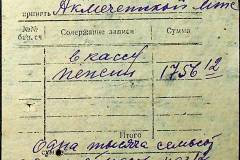 принять Акмечетской м
№№ бух. сч
Содержание записи
Сумма
в кассу
пенсии
1756 12
Итого
Одна тысяча семьсот